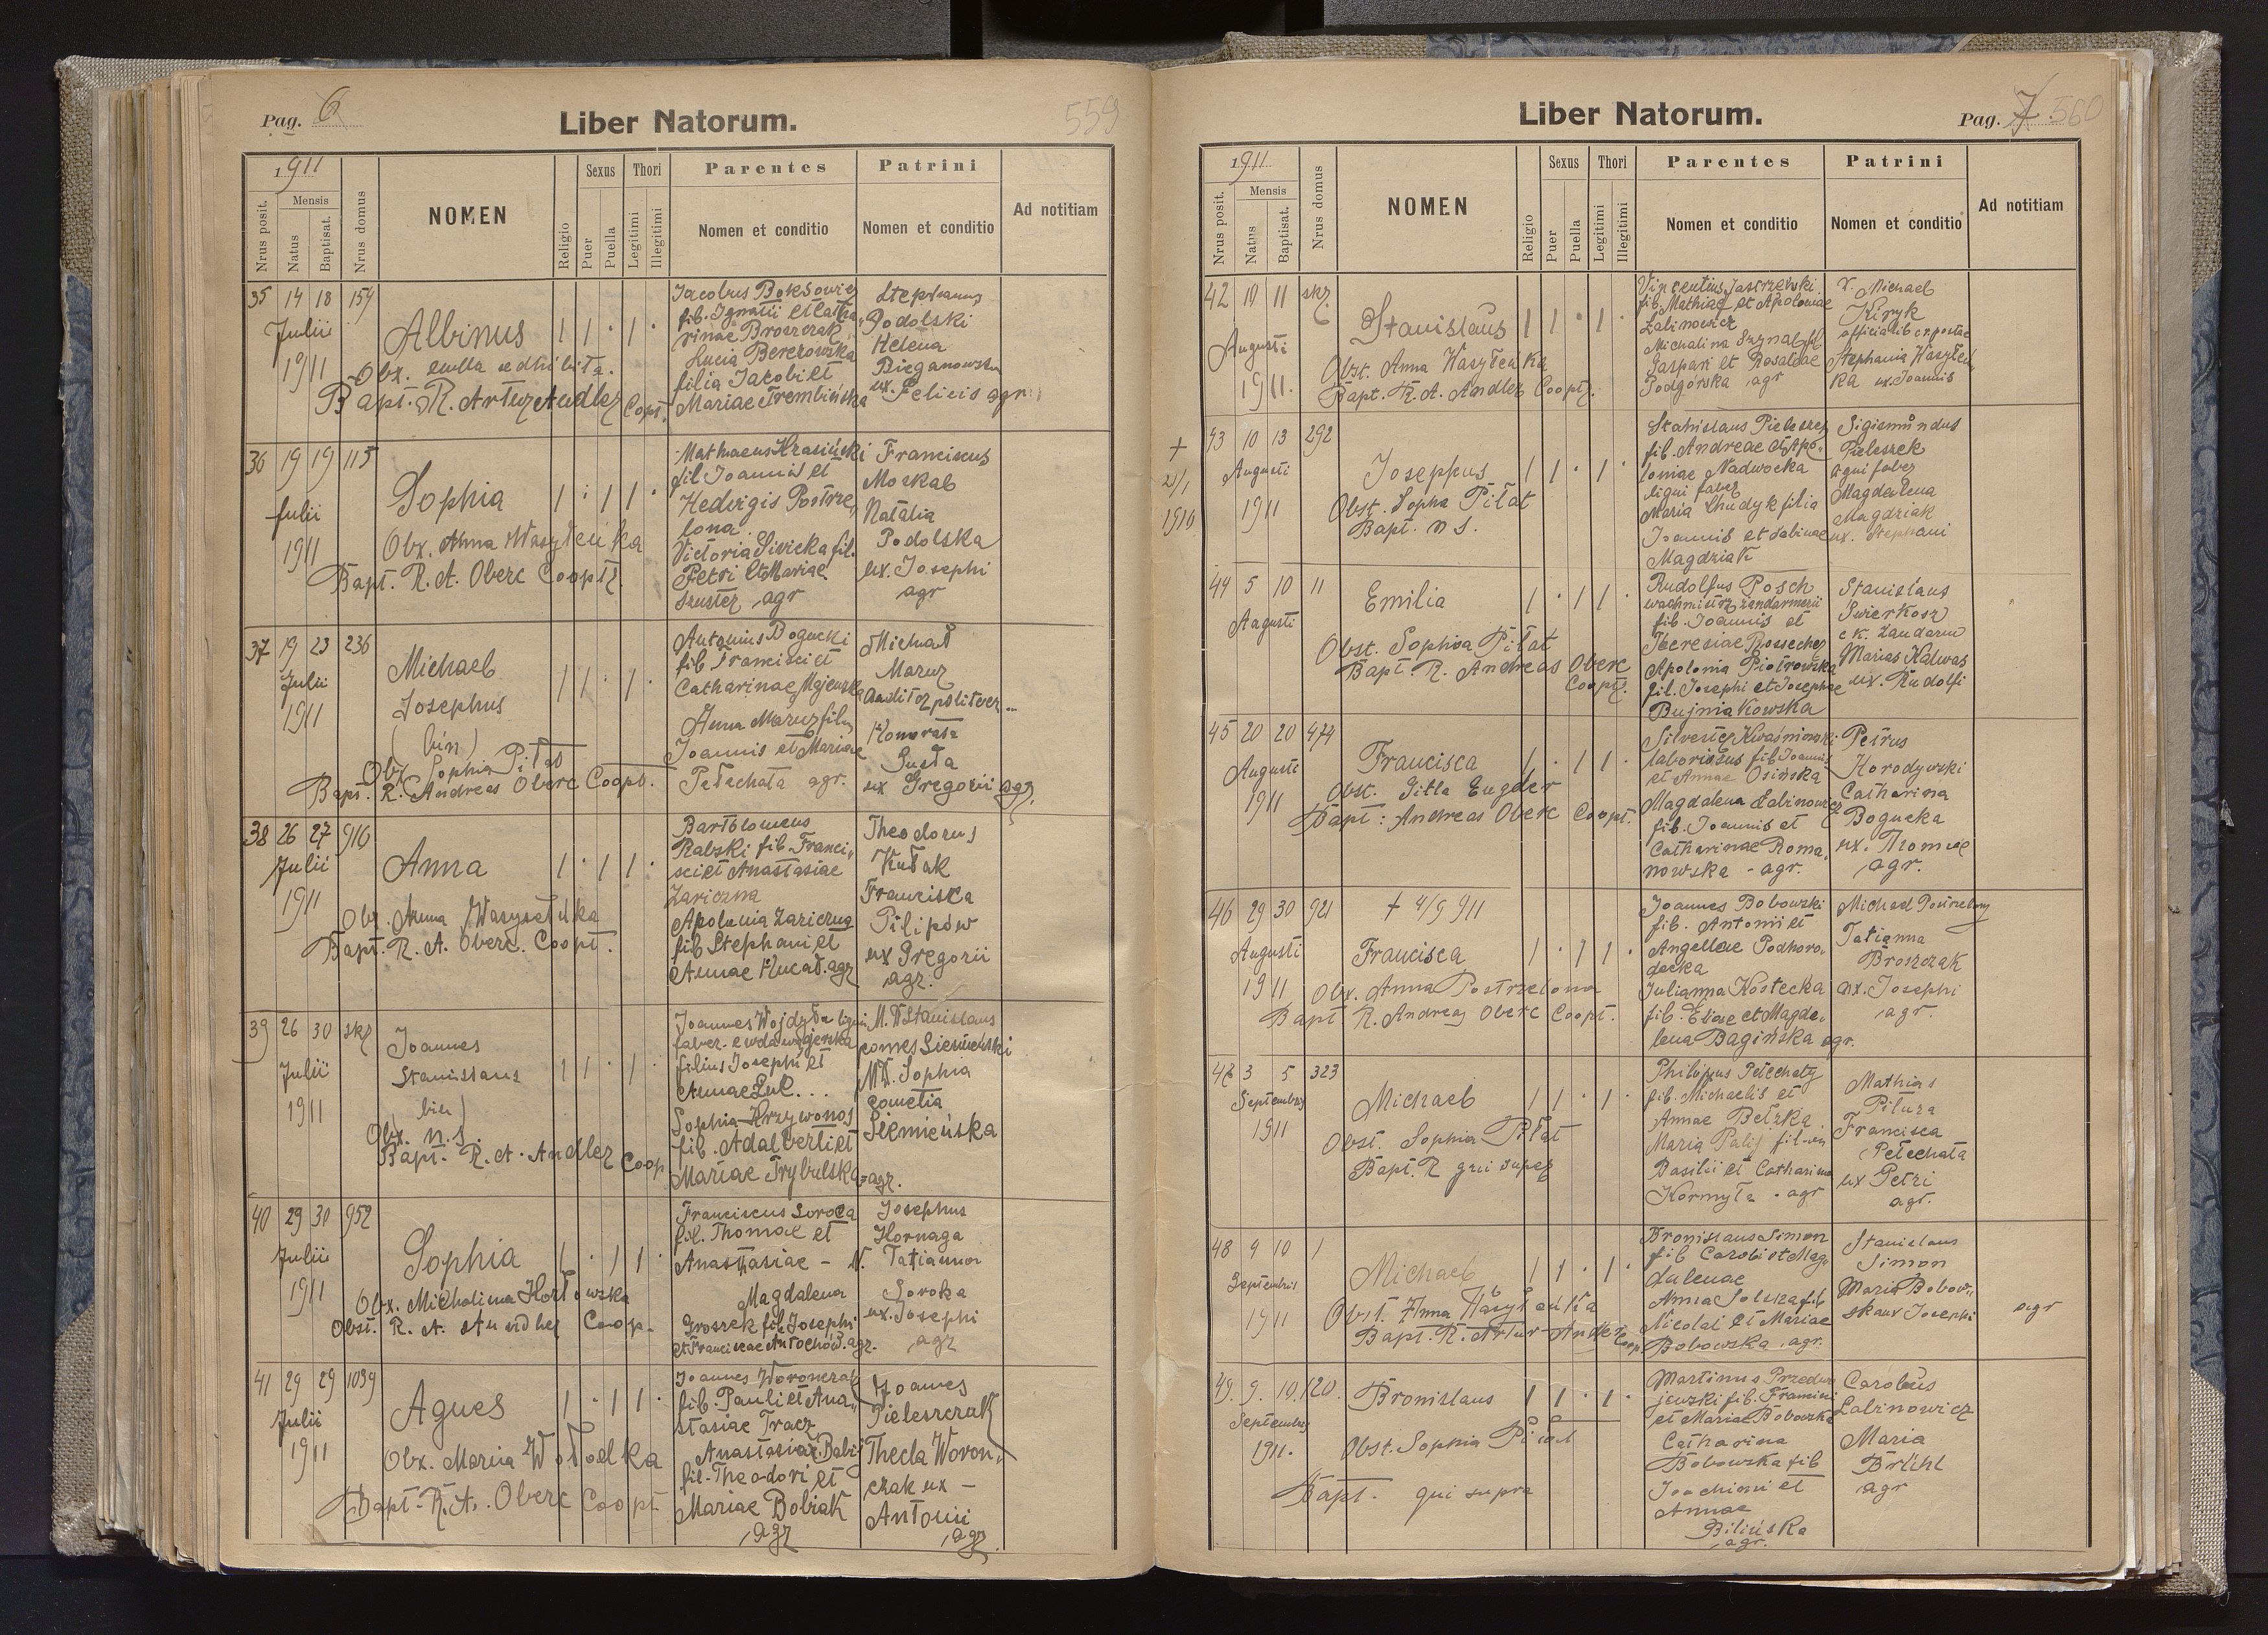 Pag. 6
Liber Natorum.
559
1911
Nrus posit.
Mensis
Natus
Baptisat.
Nrus domus
NOMEN
Religio
Sexus
Puer
Puella
Thori
Legitimi
Illegitimi
Parentes
Nomen et conditio
Patrini
Nomen et conditio
Ad notitiam
35 14 18 154
Julii
1911
Albinus
Obx. nulla adhibita.
Bapt. R. Artur Andler Copt.
Jacobus Boksowicz
fil. Ignatii et Catha-
rinae Broszczak
Lucia Berezowska
filia Jacobi et
Mariae Trembińska
Stephanus
Podolski
Helena
Bieganowska
ux. Felicis agr.
36 19 19 115
Julii
1911
Sophia
Obx. Anna Wasyłeńka
Bapt. R. A. Oberc Coopt.
Mathaeus Krasiński
fil. Joannis et
Hedvigis Postrze
lona
Victoria Sivicka fil.
Petri et Mariae
Szuster agr
Franciscus
Moskal
Natalia
Podolska
ux. Josephi
agr
37 19 23 236
Julii
1911
Michael
Josephus
(bin)
Obx. Sophia Piłat
Bapt. R. Andreas Oberc Coopt.
Antonius Bogucki
fil Francisci et
Catharinae Majewska
Anna Mazur filia
Joannis et Mariae
Petechata agr.
Michał
Mazur
Honorata
Susła
ux Gregorii agr.
38 26 27 910
Julii
1911
Anna
Obx. Anna Wasyłeńka
Bapt. R. A. Oberc. Coopt.
Bartholomeus
Rabski fil. Franci-
sci et Anastasiae
Zariczna
Apolonia Zariczna
fil Stephani et
Annae Hucał. agr
Theodorus
Kułak
Franciska
Pilipów
ux Gregorii
agr.
39 26 30 skr
Julii
1911
Joannes
Stanislaus
bin)
Obx. n.s.
Bapt. R. A. Andler Coop.
Joannes Wojdyła ligni
faber
filius Josephi et
Annae
Sophia Krzywonos
fil. Adalberti et
Mariae Trybulska agr.
M. D Stanislaus
comes Siemieński
MD. Sophia
cometia
Siemieńska
40 29 30 952
Julii
1911
Sophia
Obx. Michalina Horłowska
Obst. R. A. Andler Coop.
Franciscus Soroca
fil. Thomae et
Anastasiae - N.
Magdalena
Groszek fil. Josephi
et Franciscae Antochów. agr.
Josephus
Hornaga
Tatianna
Soroka
ux. Josephi
agr
41 29 29 1039
Julii
1911
Agnes
Obx. Maria Wołodka
Bapt. R. A. Oberc Coopt
Joannes Woronczak
fil. Pauli et Ana-
stasiae Tracz
Anastasia Babij
fil. Theodori et
Mariae Bobiak
agr
Joannes
Pieleszczak
Thecla Woron-
czak ux -
Antonii
agr.
Liber Natorum.
Pag. 7. 560
1911
Nrus posit.
Mensis
Natus
Baptisat.
Nrus domus
NOMEN
Religio
Sexus
Puer
Puella
Thori
Legitimi
Illegitimi
Parentes
Nomen et conditio
Patrini
Nomen et conditio
Ad notitiam
42 10 11 skr.
Augusti
1911.
Stanislaus
Obst. Anna Wasyłeńka
Bapt. R. A. Andler Coopt.
Vincentius Jastrzewski
fil. Mathiae et Apoloniae
Łabinowicz
Michalina Szynal fil
Gaspari et Rosaliae
Podgórska agr
Michael
Kiryk
Stephania Wasyłeń
ka ux. Joannis
+
21/1
1916
43 10 13 292
Augusti
1911
Josephus
Obst. Sophia Piłat
Bapt. n s.
Stanislaus Pieleszek
fil. Andreae et Apo-
loniae Nadwocka
ligni faber
Maria Chudyk filia
Joannis et Sabinae
Magdziak
Sigismundus
Pieleszek
ligni faber
Magdalena
Magdziak
ux. Stephani
44 5 10 11
Augusti
Emilia
Obst. Sophia Piłat
Bapt. R. Andreas Oberc
Coopt.
Rudolfus Posch
wachmistrz żandarmerii
fil. Joannis et
Theresiae
Apolonia Piotrowska
fil. Josephi et Josephae
Bujniakowska
Stanislaus
Świerkosz
c k. żandarm
Marias Kalwas
ux. Rudolfi
45 20 20 474
Augusti
1911
Francisca
Obst. Gitla Eugder
Bapt: Andreas Oberc Coopt.
Silvester Kwaśniowski
laboriosus fil Joannis
et Annae Osińska
Magdalena Łabinowicz
fil. Joannis et
Catharinae Roma-
nowska - agr.
Petrus
Horodywski
Catharina
Bogucka
ux. Thomae
agr.
46 29 30 921
Augusti
1911
+ 4/9 911
Francisca
Obx. Anna Postrzelona
Bapt R. Andreas Oberc Coopt.
Joannes Bobowski
fil. Antonii et
Angellae Podhoro-
decka
Julianna Kostecka
fil. Eliae et Magda-
lena Bagińska agr.
Michael Postrzelony
Tatianna
Broszczak
ux. Josephi
agr.
47 3 5 323
Septembris
1911
Michael
Obst. Sophia Piłat
Bapt. R qui super
Philippus Petechaty
fil. Michaelis et
Annae Betzka
Maria Palij filia
Basilii et Catharina
Kormyła - agr
Mathias
Pitura
Francisca
Petechata
ux Petri
agr.
48 9 10 1
Septembris
1911
Michael
Obst. Anna Wasyłeńka
Bapt. R. Artur Andler Coop.
Bronislaus Simon
fil Caroli et Mag-
dalenae
Anna Solska fil
Nicolai et Mariae
Bobowska. agr.
Stanislaus
Simon
Maria Bobow-
ska ux Josephi
agr
49. 9. 10. 120.
Septembris
1911.
Bronislaus
Obst. Sophia Piłat
Bapt. qui supra
Martinus Przedw
jewski fil. Francisci
et Maria Bobowska
Catharina
Bobowska fil
Joachimi et
Annae
Bilińska
agr.
Carolus
Łabinowicz
Maria
Brühl
agr